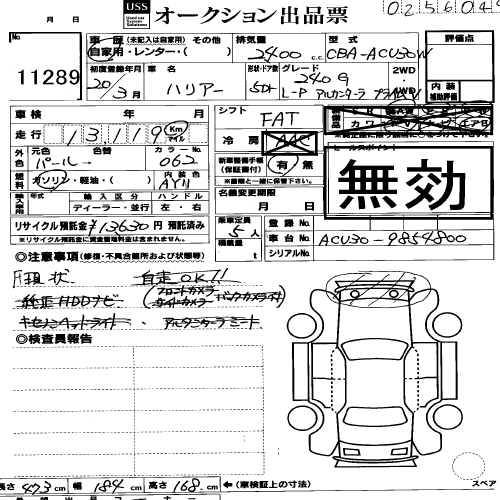 USS オークション出品票
月 日
11289
車歴 (未記入は自家用) その他
自家用・レンター・( )
排気量 2400 c.c.
型式 CBA-ACU30W
評価点
初度登録年月 20年3月
車名 ハリアー
形状・ドア数 5Dr
グレード 240G
L-P アルカンターラ
2WD
4WD
内装
補助評価
車検 年 月
走行 13119 Km マイル
シフト FAT
冷房 AAC
外色 元色 パール 色替 カラーNo. 062
燃料 ガソリン・軽油・( ) 内装色 AY11
年式 輸入区分 ハンドル
ディーラー・並行 左・右
新車整備手帳 (保証書付) 有・無
※書類と一緒に保管して下さい。
名義変更期限
月 日
セールスポイント
無効
リサイクル預託金 ¥13630円 預託済み
※リサイクル預託金に資金管理料金は含まれません。
乗車定員 5人
積載量 t
登録No.
車台No. ACU30-9854800
シリアルNo.
◎注意事項 (修復・不具合箇所および状態等)
現状 自走OK!!
純正HDDナビ (フロントカメラ サイドカメラ バックカメラ付)
キセノンヘッドライト・アルカンターラシート
◎検査員報告
長さ 473cm 幅 184cm 高さ 168cm ←(車検証上の寸法)
スペア